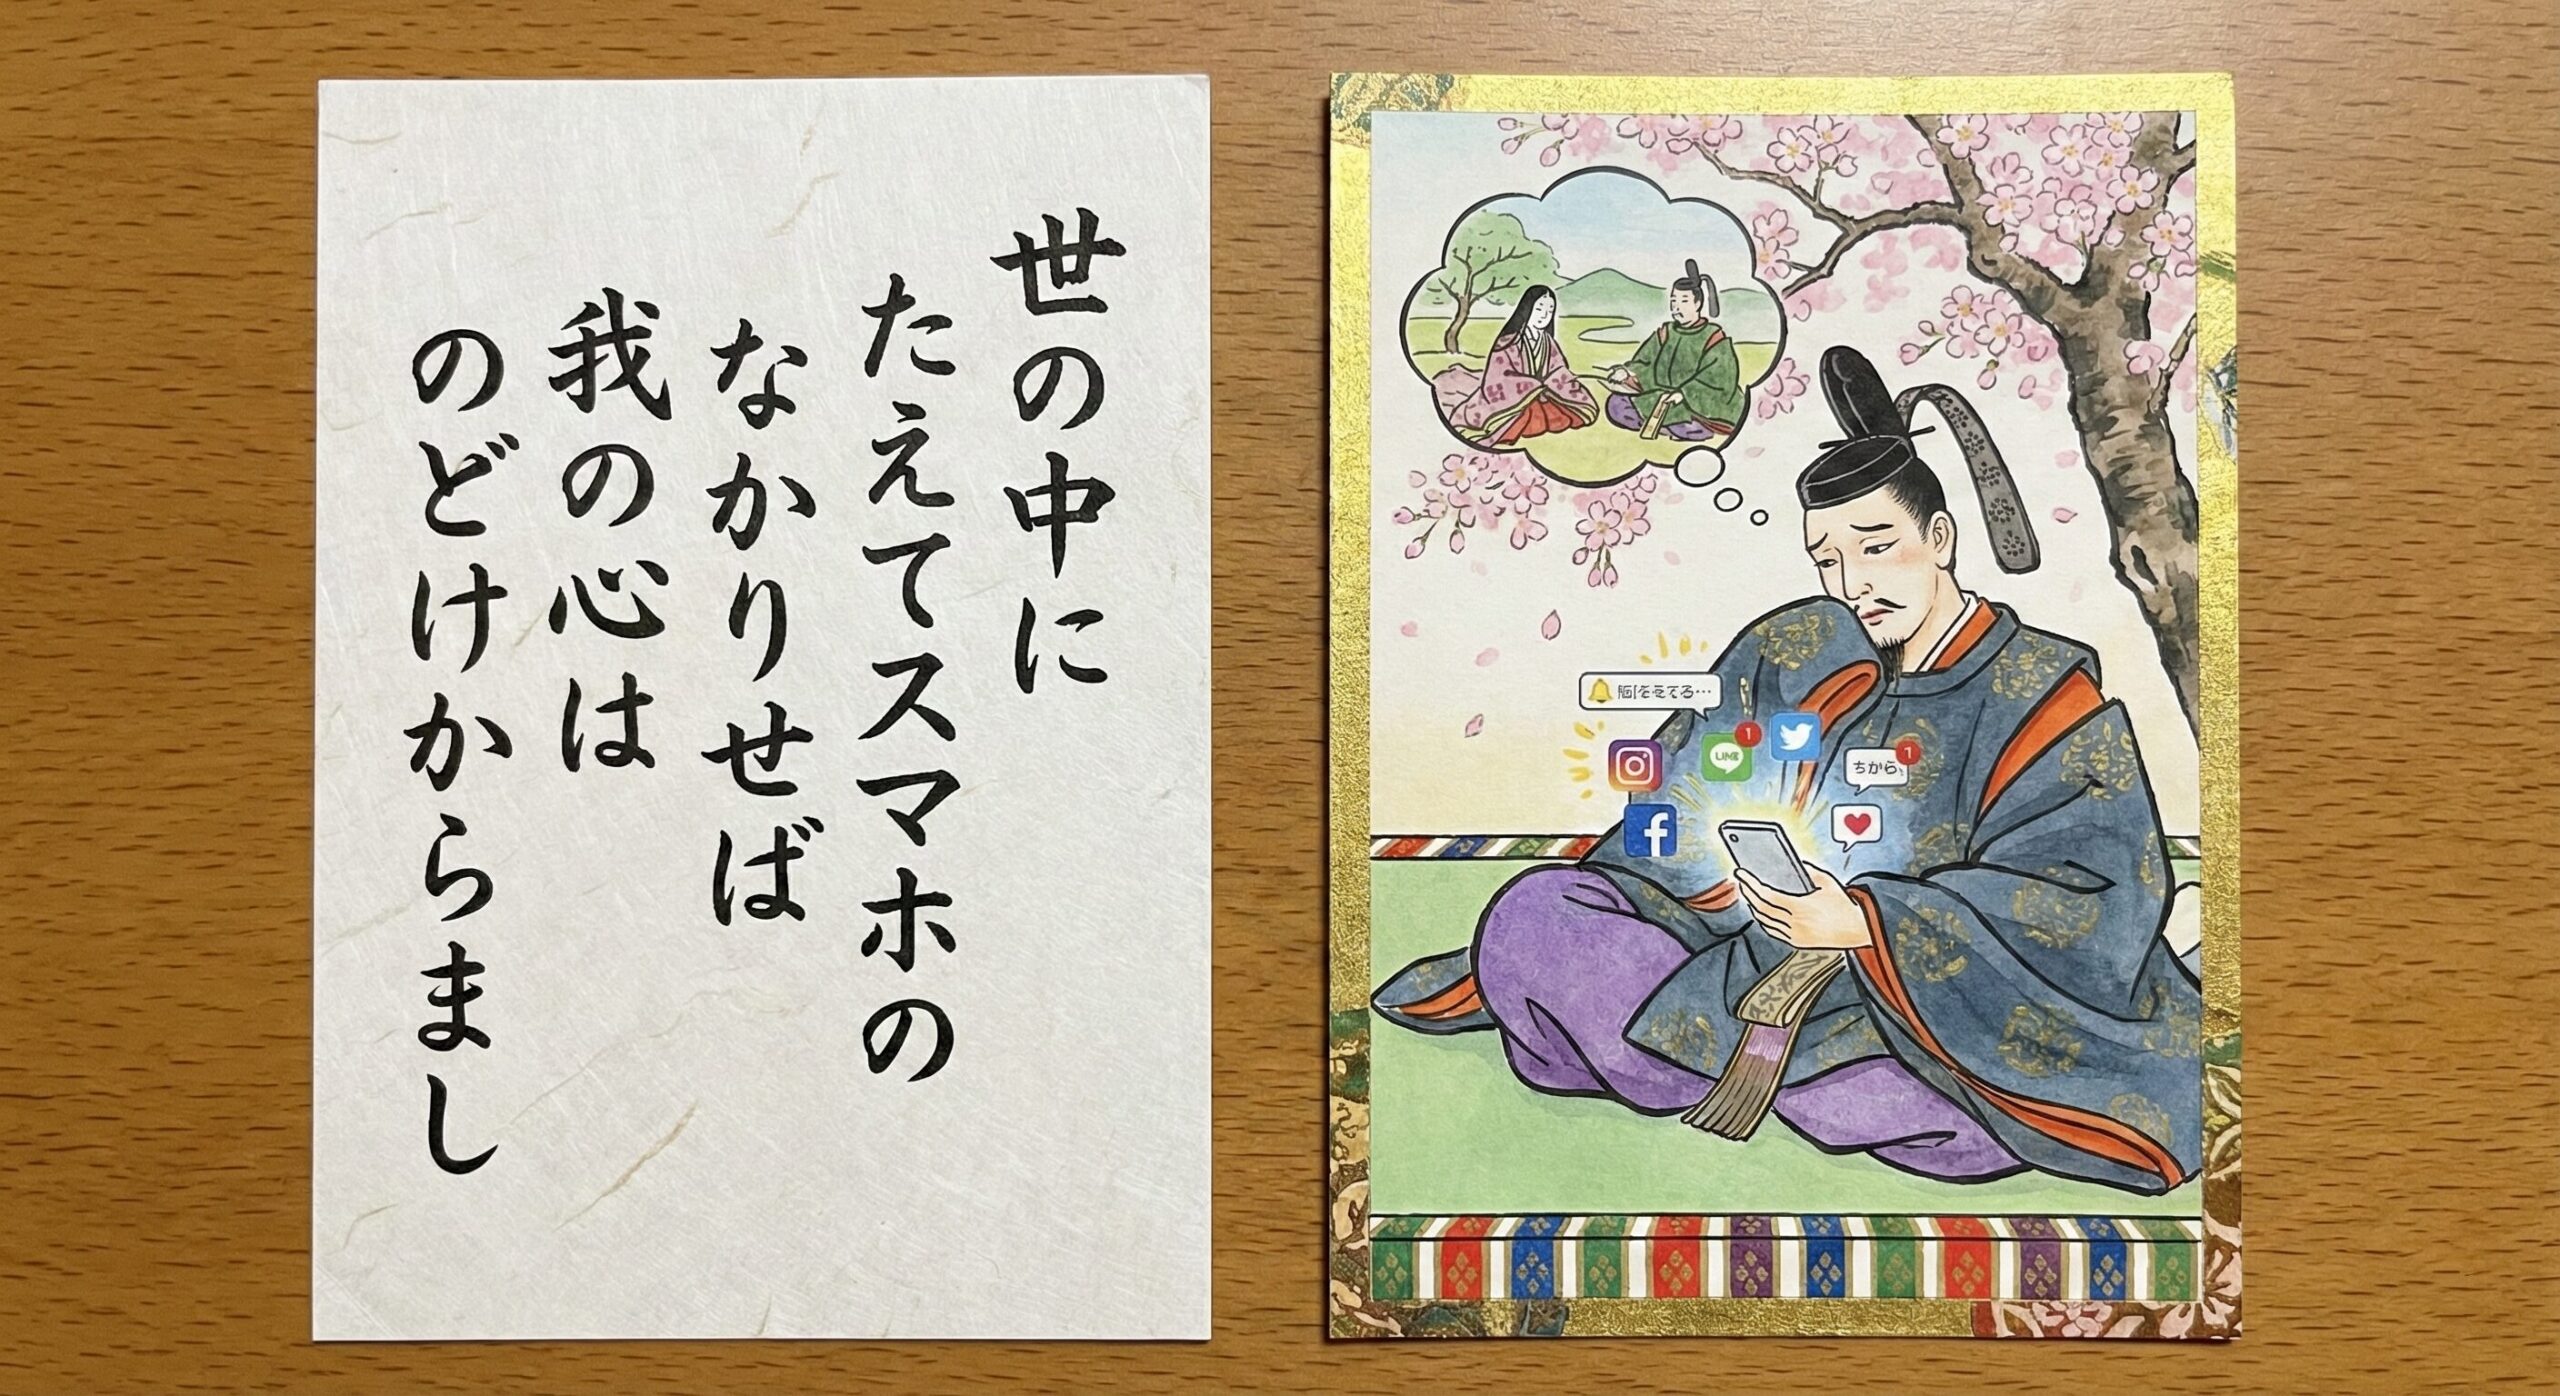 世の中に
たえてスマホの
なかりせば
我の心は
のどけからまし
LINE
1
ちから
1
f